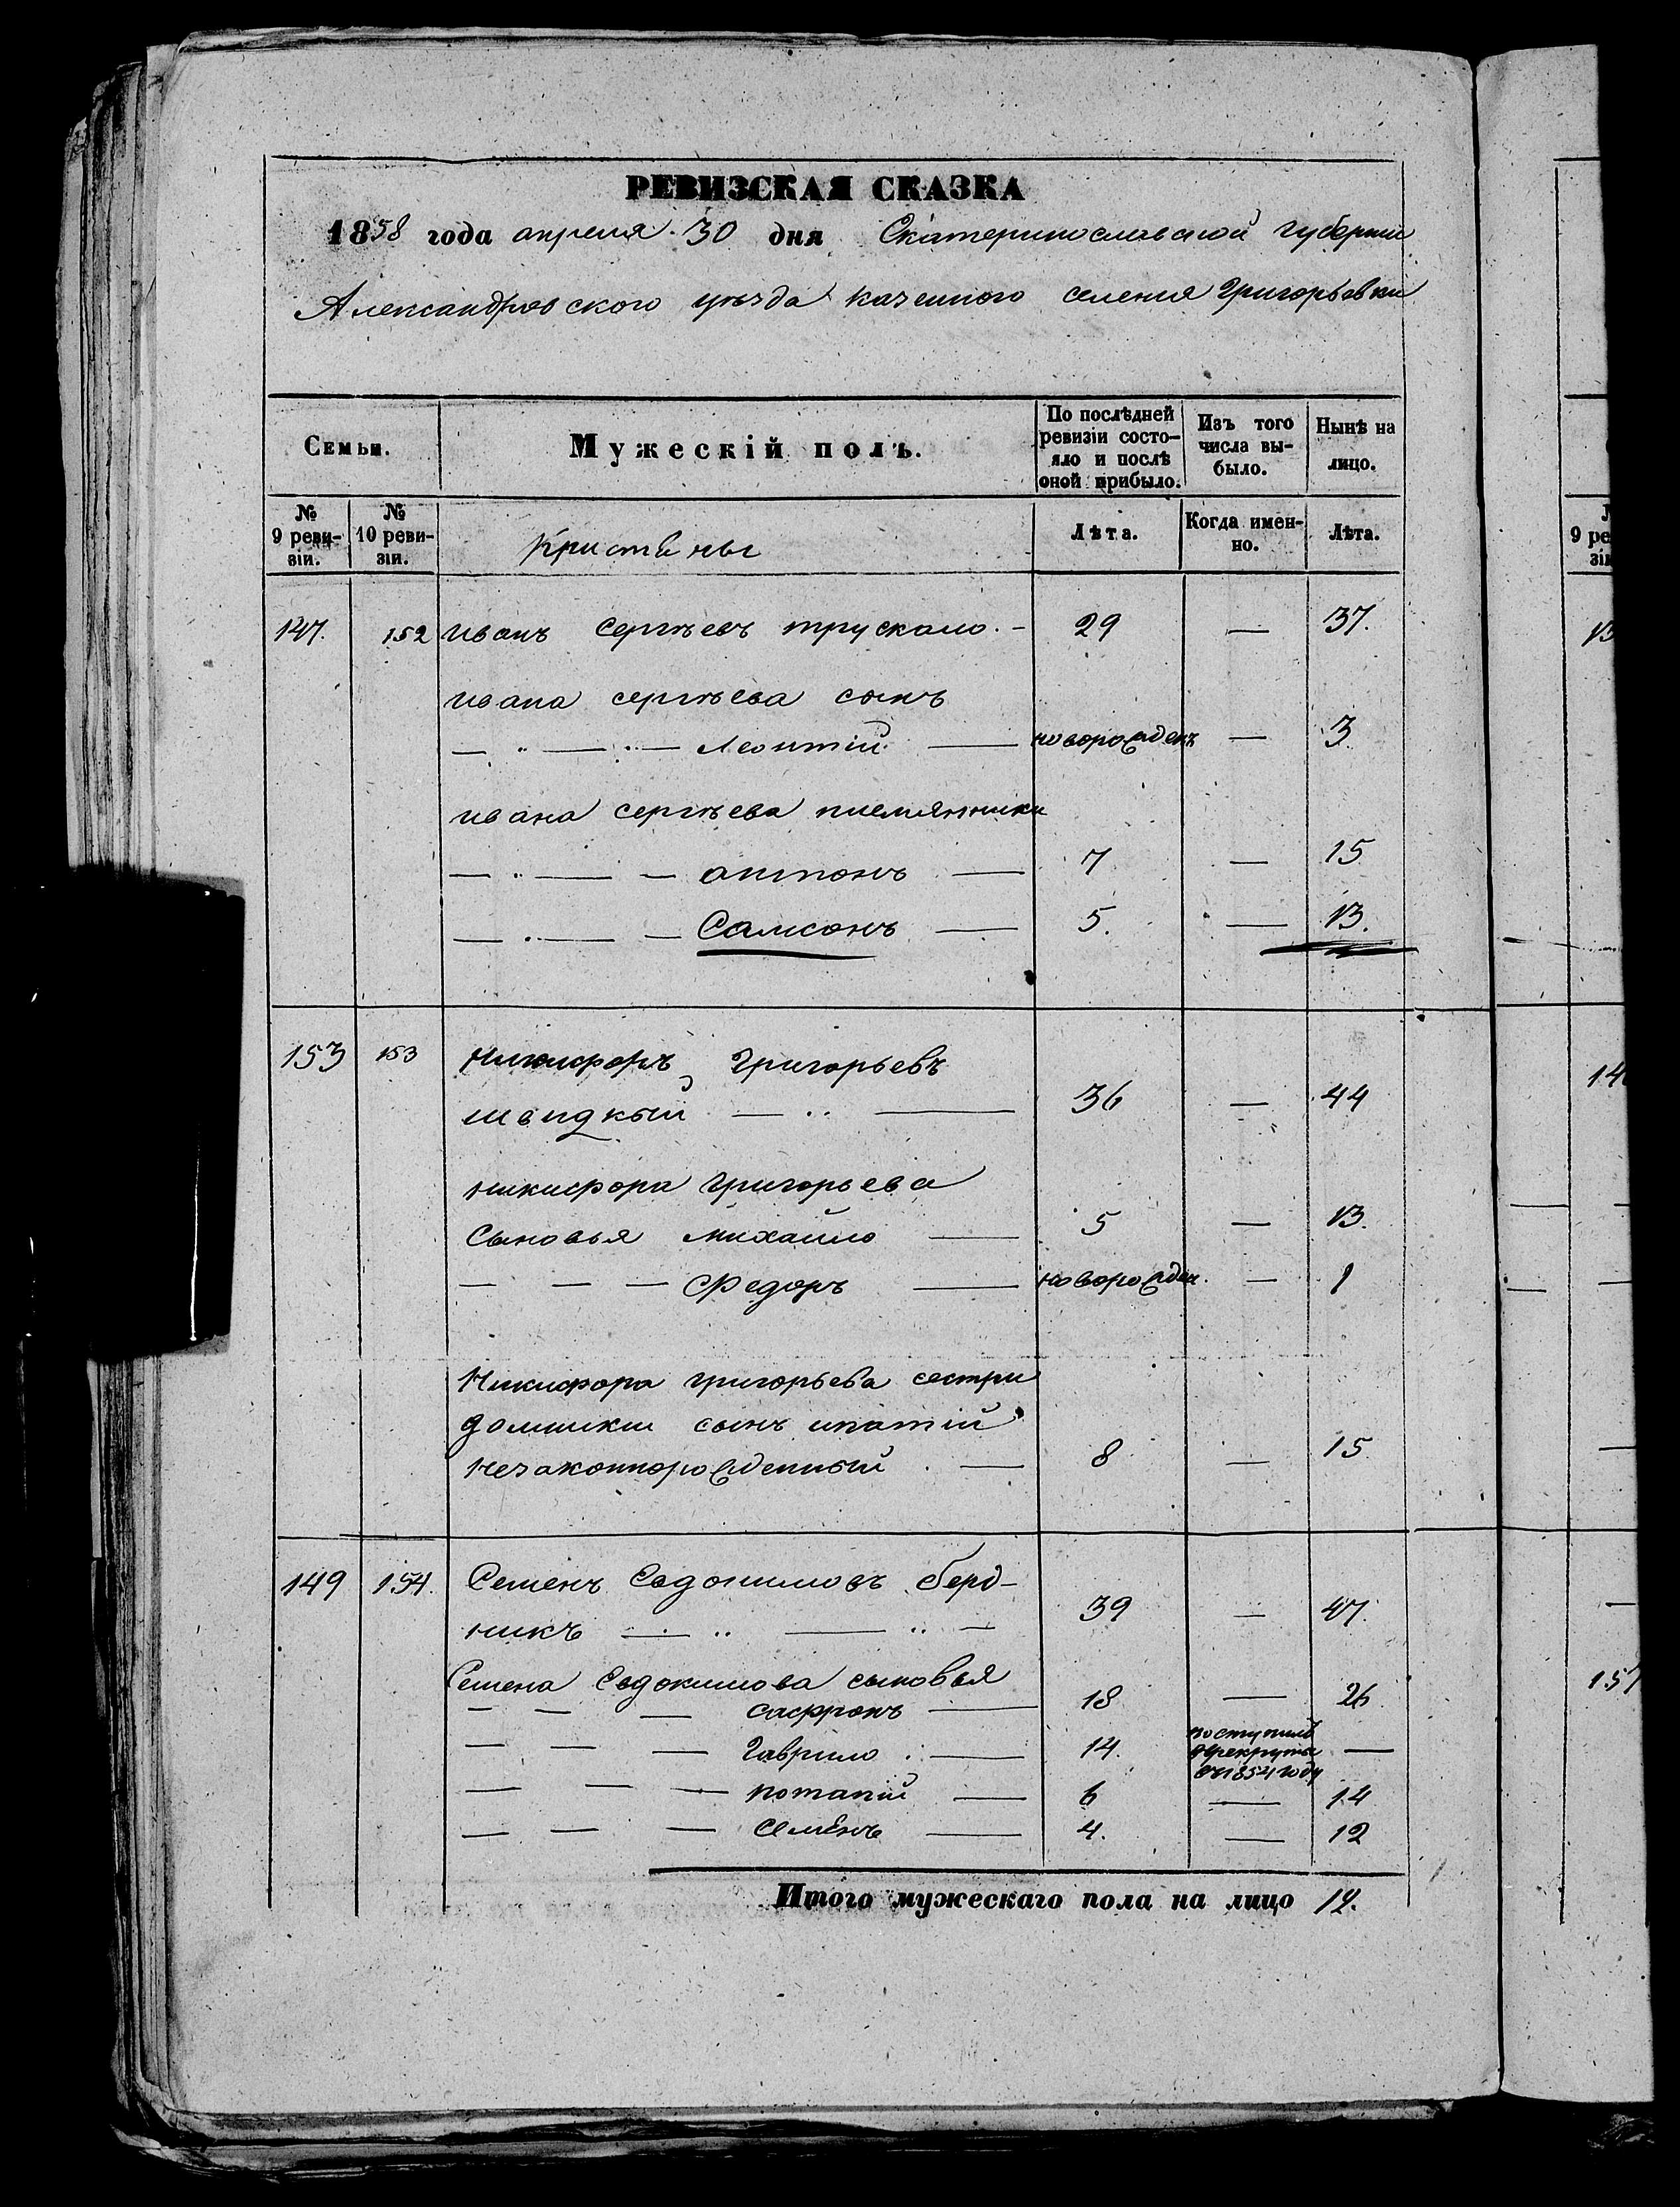 РЕВИЗСКАЯ СКАЗКА
1858 года апреля 30 дня Екатеринославской губернии
Александровского уѣзда казенного селения Григорьевки
Семьи.
Мужескій полъ.
По послѣдней ревизіи состо-яло и послѣ оной прибыло.
Изъ того числа вы-было.
Нынѣ на лицо.
№ 9 реви-зіи.
№ 10 реви-зіи.
Лѣта.
Когда имен-но.
Лѣта.
147. 152 иванъ сергѣевъ трускало. – 29 — 37.
ивана сергѣева сынъ
— " — " — Леонтій — новорожденъ — 3
ивана сергѣева племянники
— " — — антонъ — 7 — 15
— " — — Самсонъ — 5. — 13.
153 153 Никифоръ Григорьевъ
швидкый — " — 36 — 44
никифора григорьева
Сыновья михайло — 5 — 13.
— — — Федоръ — новорожден. — 1
Никифора григорьева сестри
домники сынъ ипатій
незаконнорожденный — 8 — 15
149 154. Семенъ Евдокимовъ берд-
никъ — " — " — 39 — 47.
Семена Евдокимова сыновья
— — — сафронъ — 18 — 26
— — — гаврило — 14. поступилъ
в рекруты —
въ 1854 году
— — — потапій — 6 — 14
— — — семенъ — 4. — 12
Итого мужескаго пола на лицо 12.
9 ре
зіи